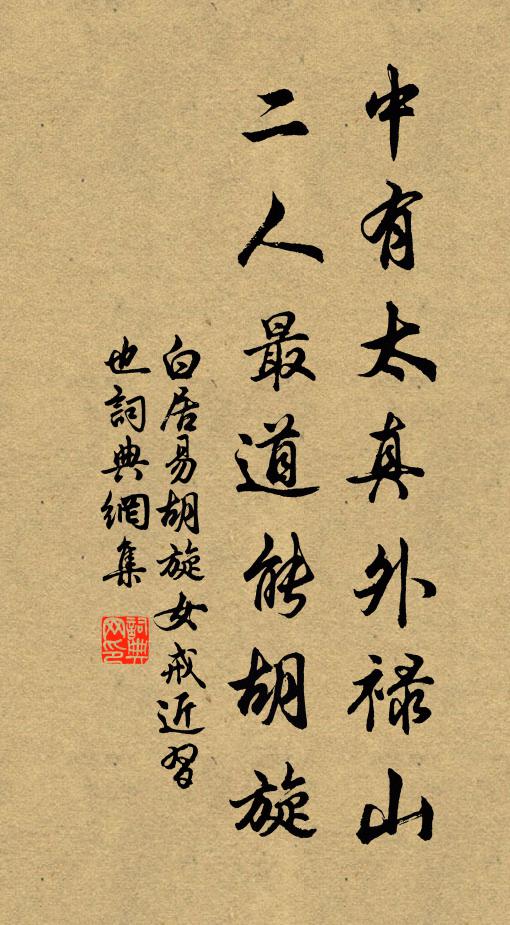 中有太真外禄山
二人最道能胡旋
白居易胡旋女戒近習
也詞典網集
詞典网印